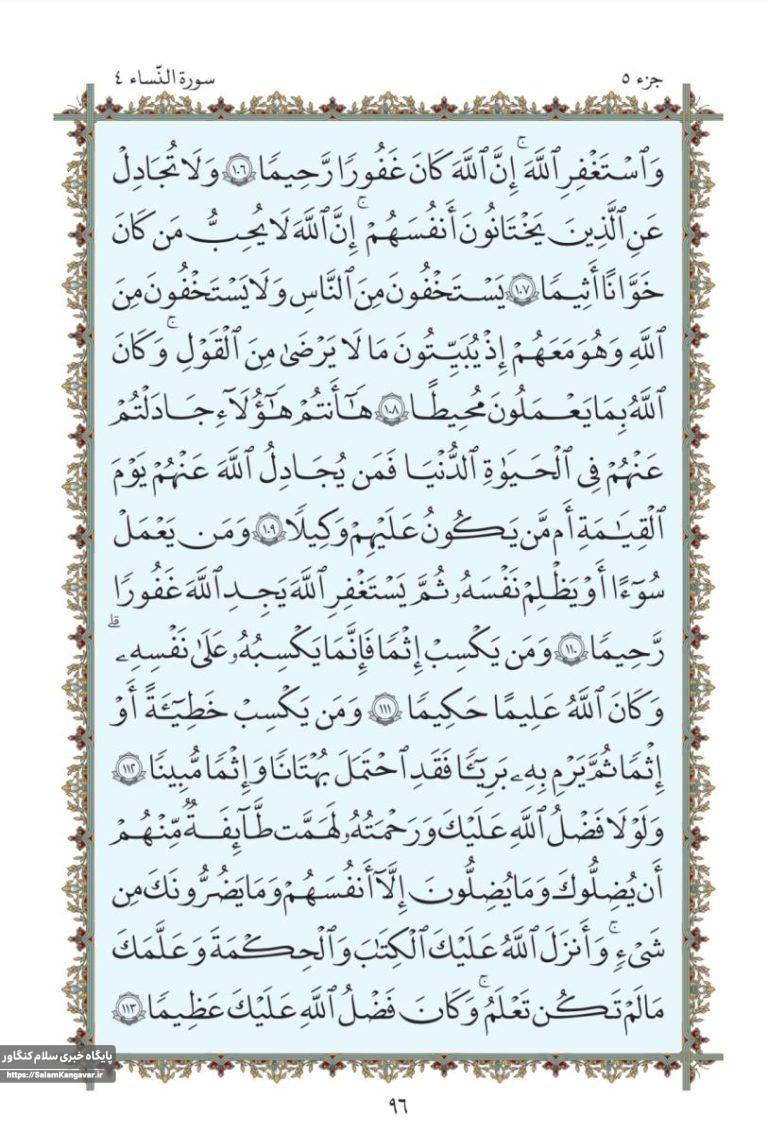 جزء ٥
سورة النّساء ٤
وَٱسْتَغْفِرِ ٱللَّهَ ۖ إِنَّ ٱللَّهَ كَانَ غَفُورًا رَّحِيمًا ١٠٦ وَلَا تُجَادِلْ
عَنِ ٱلَّذِينَ يَخْتَانُونَ أَنفُسَهُمْ ۚ إِنَّ ٱللَّهَ لَا يُحِبُّ مَن كَانَ
خَوَّانًا أَثِيمًا ١٠٧ يَسْتَخْفُونَ مِنَ ٱلنَّاسِ وَلَا يَسْتَخْفُونَ مِنَ
ٱللَّهِ وَهُوَ مَعَهُمْ إِذْ يُبَيِّتُونَ مَا لَا يَرْضَىٰ مِنَ ٱلْقَوْلِ ۚ وَكَانَ
ٱللَّهُ بِمَا يَعْمَلُونَ مُحِيطًا ١٠٨ هَـٰٓأَنتُمْ هَـٰٓؤُلَآءِ جَـٰدَلْتُمْ
عَنْهُمْ فِى ٱلْحَيَوٰةِ ٱلدُّنْيَا فَمَن يُجَـٰدِلُ ٱللَّهَ عَنْهُمْ يَوْمَ
ٱلْقِيَـٰمَةِ أَم مَّن يَكُونُ عَلَيْهِمْ وَكِيلًا ١٠٩ وَمَن يَعْمَلْ
سُوٓءًا أَوْ يَظْلِمْ نَفْسَهُۥ ثُمَّ يَسْتَغْفِرِ ٱللَّهَ يَجِدِ ٱللَّهَ غَفُورًا
رَّحِيمًا ١١٠ وَمَن يَكْسِبْ إِثْمًا فَإِنَّمَا يَكْسِبُهُۥ عَلَىٰ نَفْسِهِۦ ۚ
وَكَانَ ٱللَّهُ عَلِيمًا حَكِيمًا ١١١ وَمَن يَكْسِبْ خَطِيٓـَٔةً أَوْ
إِثْمًا ثُمَّ يَرْمِ بِهِۦ بَرِيٓـًٔا فَقَدِ ٱحْتَمَلَ بُهْتَانًا وَإِثْمًا مُّبِينًا ١١٢
وَلَوْلَا فَضْلُ ٱللَّهِ عَلَيْكَ وَرَحْمَتُهُۥ لَهَمَّت طَّآئِفَةٌ مِّنْهُمْ
أَن يُضِلُّوكَ وَمَا يُضِلُّونَ إِلَّآ أَنفُسَهُمْ وَمَا يَضُرُّونَكَ مِن
شَىْءٍ ۚ وَأَنزَلَ ٱللَّهُ عَلَيْكَ ٱلْكِتَـٰبَ وَٱلْحِكْمَةَ وَعَلَّمَكَ
مَا لَمْ تَكُن تَعْلَمُ ۚ وَكَانَ فَضْلُ ٱللَّهِ عَلَيْكَ عَظِيمًا ١١٣
پایگاه خبری سلام کنگاور
https://SalamKangavar.ir
٩٦